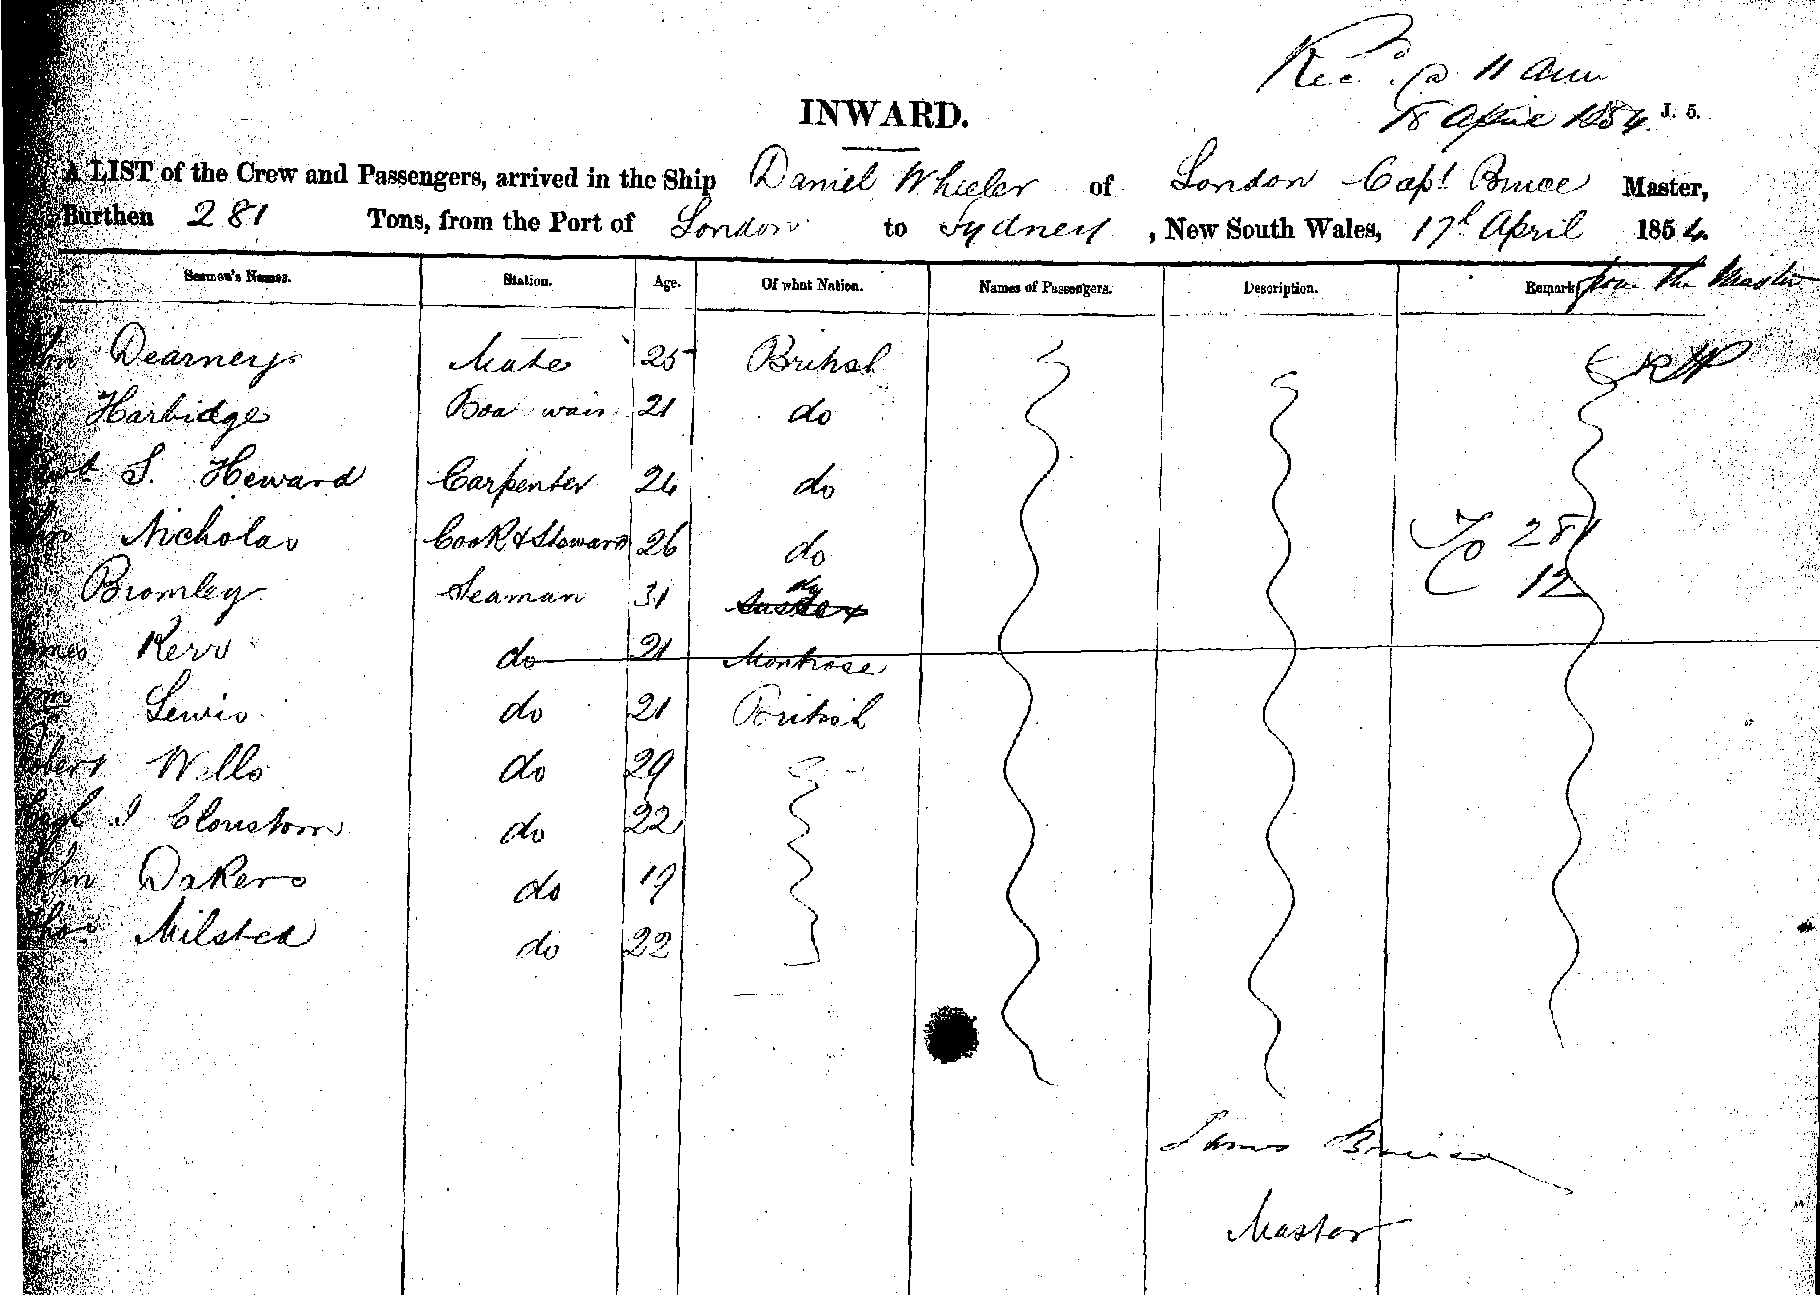 Recd @ 11 am
18 April 1854. J. 5.
INWARD.
A LIST of the Crew and Passengers, arrived in the Ship Daniel Wheeler of London Capt Bruce Master,
Burthen 281 Tons, from the Port of London to Sydney, New South Wales, 17th April 1854
Seamen's Names. Station. Age. Of what Nation. Names of Passengers. Description. Remarks from the Master
Dearney Mate 25 British
Harbidge Boa wain 21 do
S. Heward Carpenter 24 do
Nicholas Cook & Steward 26 do 281
Bromley Seaman 31 do 12
Kerr do 21 Montrose
Lewis do 21 British
Robert Wells do 29
I Clouston do 22
John Dakers do 19
Thos Milsted do 22
James Bruce
Master